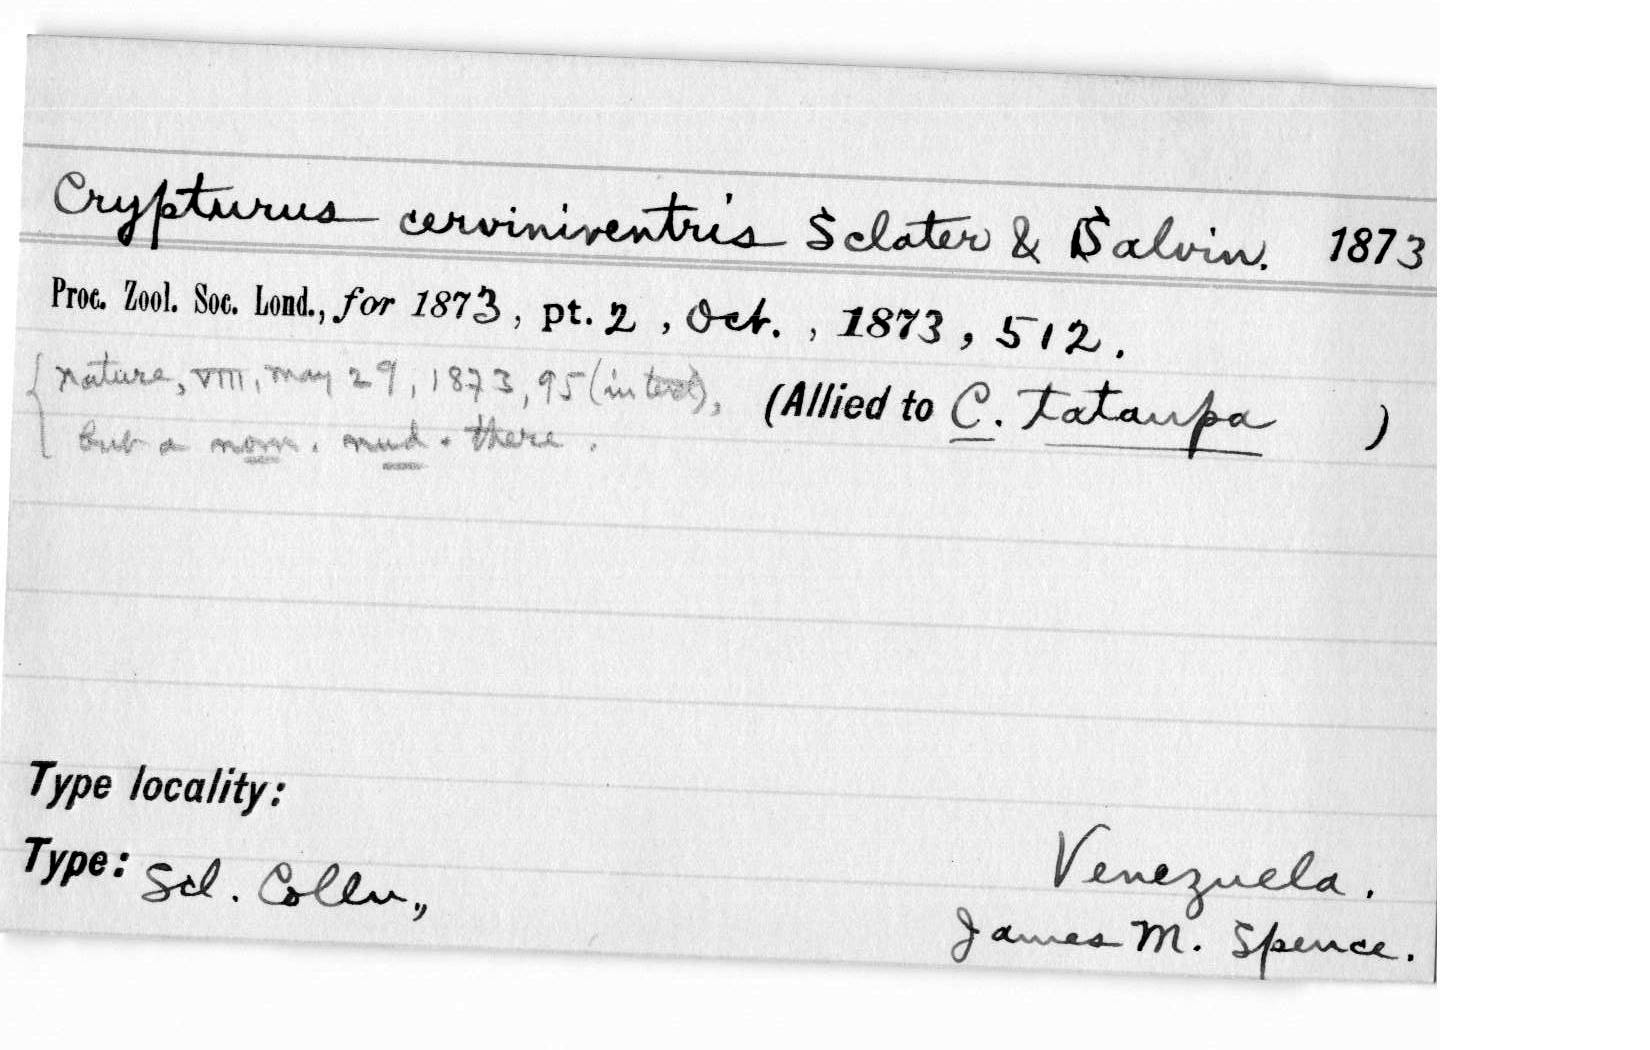 Crypturus cerviniventris Sclater & Salvin. 1873
Proc. Zool. Soc. Lond., for 1873, pt. 2, Oct., 1873, 512.
{Nature, VIII, May 29, 1873, 95 (in text),
but a nom. nud. there.
(Allied to C. tataupa )
Type locality:
Venezuela.
Type: Scl. Colln.,
James M. Spence.